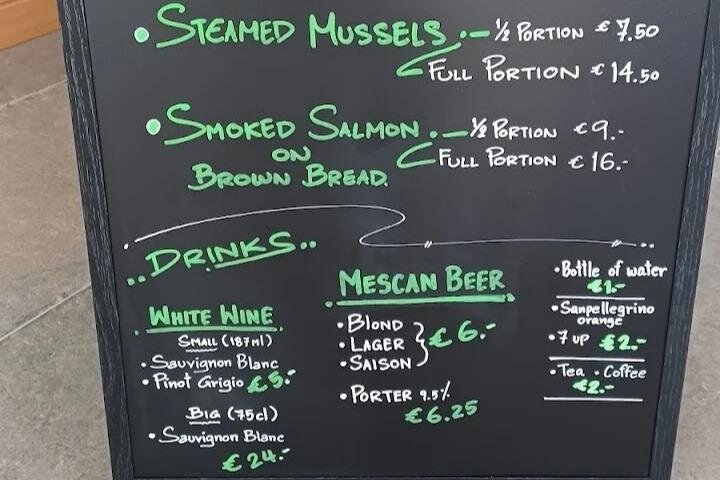 • STEAMED MUSSELS .– ½ PORTION € 7.50
FULL PORTION € 14.50
• SMOKED SALMON .– ½ PORTION € 9.-
ON
FULL PORTION € 16.-
BROWN BREAD.
..DRINKS..
WHITE WINE
SMALL (187ml)
• Sauvignon Blanc
• Pinot Grigio € 5.-
BIG (75cl)
• Sauvignon Blanc
€ 24.-
MESCAN BEER
• BLOND
• LAGER } € 6.-
• SAISON
• PORTER 9.5%
€ 6.25
• Bottle of water
€ 1.-
• Sanpellegrino
orange
• 7 UP € 2.-
• Tea • Coffee
€ 2.-